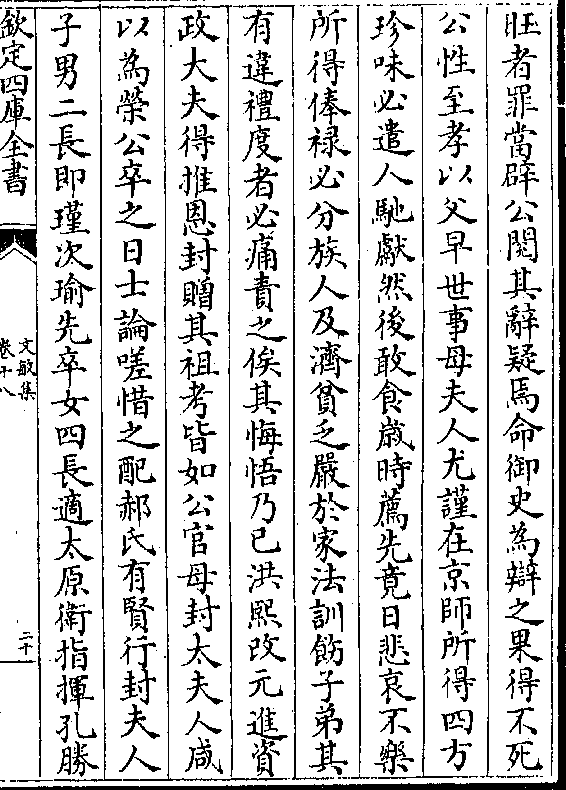 旺者罪當辟公閱其辭疑焉命御史為辯之果得不死
公性至孝以父早世事母夫人尤謹在京師所得四方
珍味必遣人馳獻然後敢食歲時薦先竟日悲哀不樂
所得俸祿必分族人及濟貧乏嚴於家法訓飭子弟其
有違禮度者必痛責之俟其悔悟乃已洪熙改元進資
政大夫得推恩封贈其祖考皆如公官母封太夫人咸
以為榮公卒之日士論嗟惜之配郝氏有賢行封夫人
子男二長即瑾次瑜先卒女四長適太原衛指揮孔勝
欽定四庫全書
文敏集
卷十八
二十